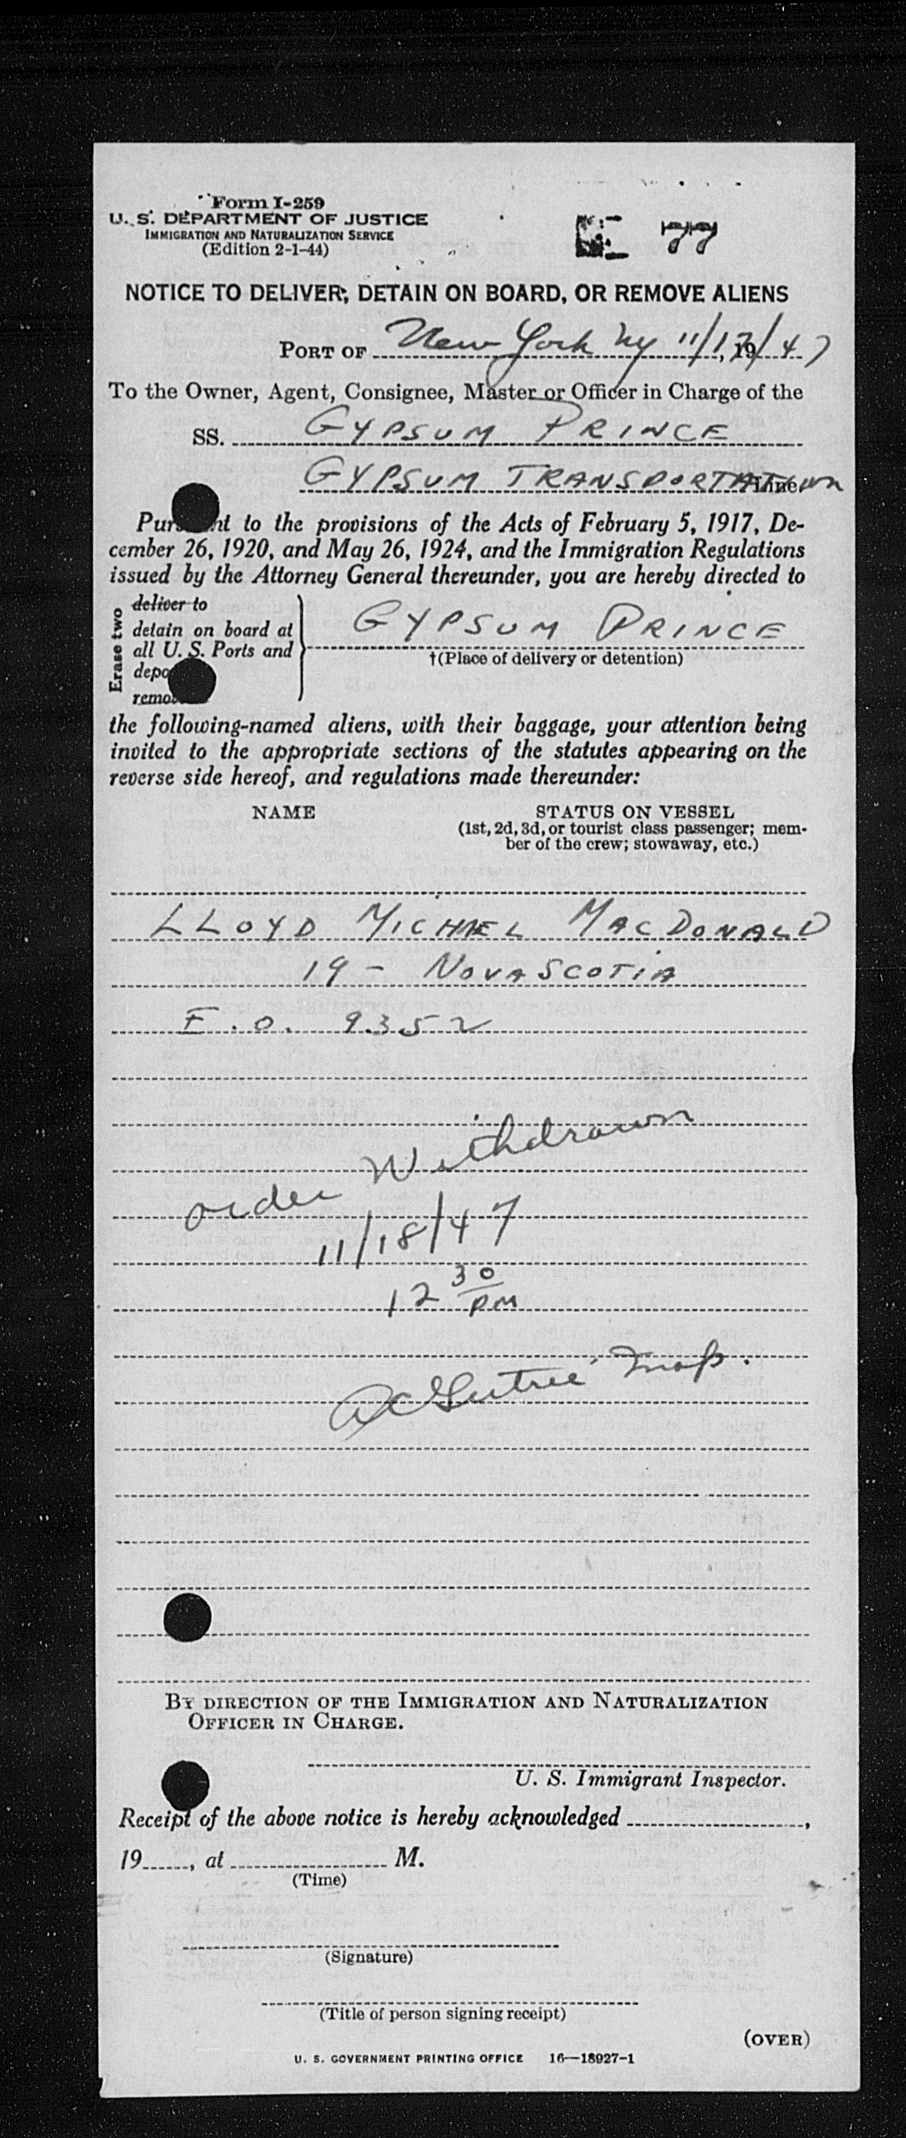 Form I-259
U. S. DEPARTMENT OF JUSTICE
IMMIGRATION AND NATURALIZATION SERVICE
(Edition 2-1-44)
E 77
NOTICE TO DELIVER, DETAIN ON BOARD, OR REMOVE ALIENS
PORT OF New York NY 11/17/47, 19
To the Owner, Agent, Consignee, Master or Officer in Charge of the
SS. GYPSUM PRINCE
GYPSUM TRANSPORTATION Line
Pursuant to the provisions of the Acts of February 5, 1917, De-
cember 26, 1920, and May 26, 1924, and the Immigration Regulations
issued by the Attorney General thereunder, you are hereby directed to
Erase two
deliver to
detain on board at
all U. S. Ports and
depo
remo
GYPSUM PRINCE
†(Place of delivery or detention)
the following-named aliens, with their baggage, your attention being
invited to the appropriate sections of the statutes appearing on the
reverse side hereof, and regulations made thereunder:
NAME STATUS ON VESSEL
(1st, 2d, 3d, or tourist class passenger; mem-
ber of the crew; stowaway, etc.)
LLOYD MICHAEL MACDONALD
19 - NOVA SCOTIA
E.O. 9352
order Withdrawn
11/18/47
12 30 PM
BY DIRECTION OF THE IMMIGRATION AND NATURALIZATION
OFFICER IN CHARGE.
U. S. Immigrant Inspector.
Receipt of the above notice is hereby acknowledged ,
19 , at M.
(Time)
(Signature)
(Title of person signing receipt)
(OVER)
U. S. GOVERNMENT PRINTING OFFICE 16—18927-1